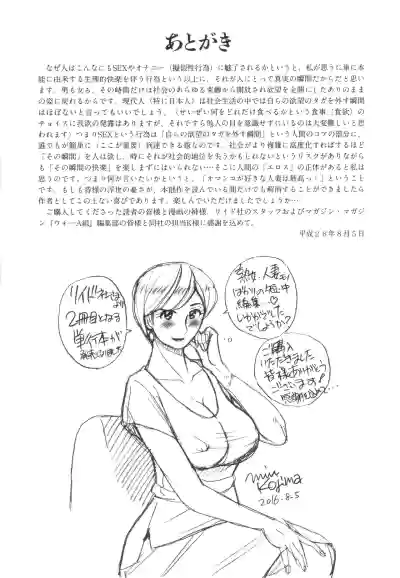 あとがき
なぜ人はこんなにもSEXやオナニー(擬似性行為)に魅了されるかというと、私が思うに単に本
能に由来する生理的快楽を伴う行為という以上に、それが人にとって真実の瞬間だからだと思い
ます。男も女も、その時間だけは社会のあらゆる束縛から開放され欲望を全開にしたありのまま
の姿に戻れるからです。現代人(特に日本人)は社会生活の中では自らの欲望のタガを外す瞬間
はほぼないと言ってもいいでしょう。(せいぜい何をどれだけ食べるかという食事(食欲)の
チョイスに我欲の発露はありますが、それですら他人の目を意識せずにいるのは大変難しいと思
われます)つまりSEXという行為は「自らの欲望のタガを外す瞬間」という人間のコマの部分に、
誰でもが簡単に(ここが重要)到達できる数なのです。社会がより複雑に高度化すればするほど
「その瞬間」を人は欲し、時にそれが社会的地位を失うかもしれないというリスクがありながら
も「その瞬間の快楽」を楽しまずにはいられない…そこに人間の「エロス」の正体があると私は
思うのです。つまり何が言いたいかというと、「オマンコが好きな人妻は最高っ!」ということ
です。もしも皆様の浮世の憂さが、本拙作を読んでいる間だけでも解消することができましたら
作者としてこの上ない喜びであります。楽しんでいただけましたでしょうか…
ご購入してくださった読者の皆様と漫画の神様、リイド社のスタッフおよびマガジン・マガジ
ン『ウォーA組』編集部の皆様と同社の担当K様に感謝を込めて。
平成28年8月5日
リイド社さまより
2冊目となる
単行本が
熟女、人妻モノ
ばかりの短中
編集♡
いかがでした
でしょうか?
ご購入
いただきました
皆様ありがとう
ございます!
感謝を込めて…
miu
Kojima
2016.8.5